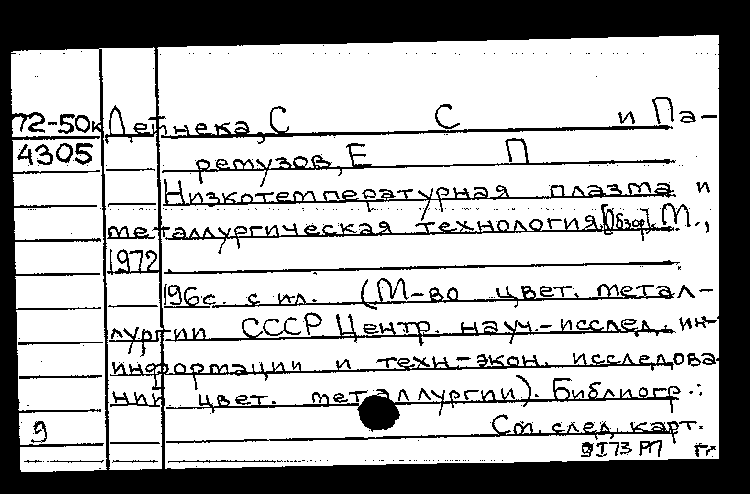 72-50к Дейнека, С С и Па-
4305 ремузов, Е П
Низкотемпературная плазма и
металлургическая технология. [Обзор]. М.,
1972.
196с. с ил. (М-во цвет. метал-
лургии СССР Центр. науч.-исслед. ин-
информации и техн-экон. исследова
ний цвет. металлургии). Библиогр.:
9 См. след. карт.
9 I 73 РП